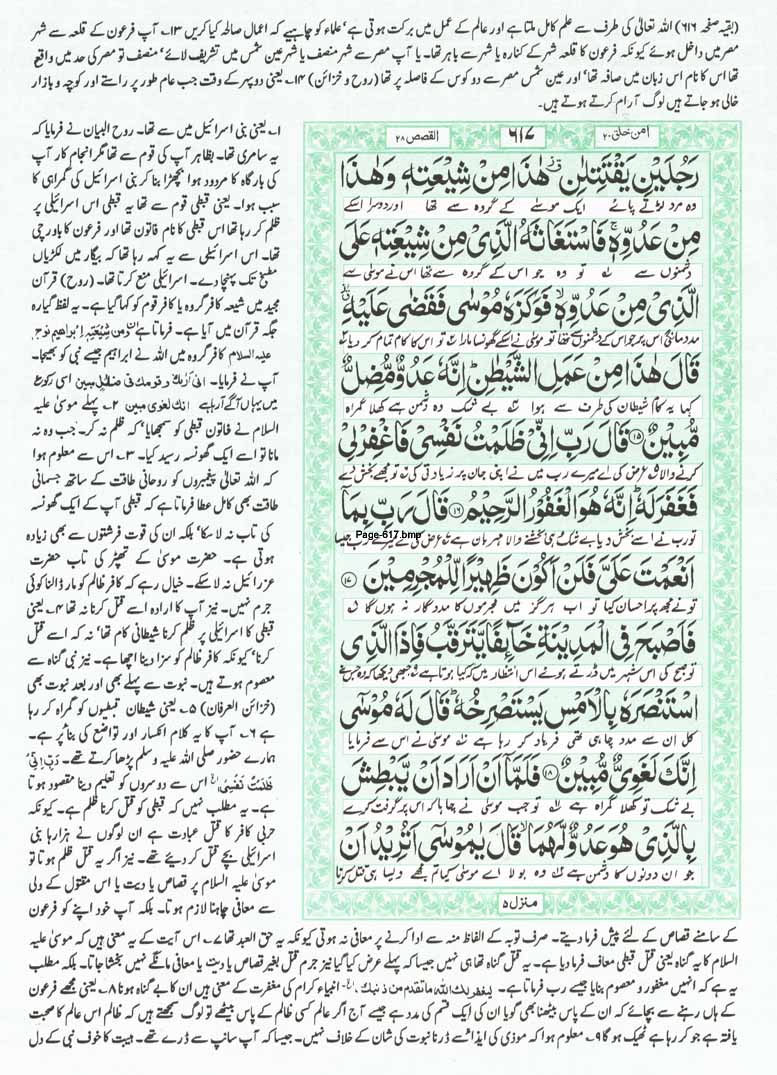 (بقیہ صفحہ ۶۱۶) اللہ تعالیٰ کی طرف سے علم کامل ملتا ہے اور عالم کے عمل میں برکت ہوتی ہے، علماء کو چاہیے کہ اعمال صالحہ کیا کریں ۱۳۔ آپ فرعون کے قلعہ سے شہر
مصر میں داخل ہوئے کیونکہ فرعون کا قلعہ شہر کے کنارہ یا شہر سے باہر تھا۔ یا آپ مصر سے شہر منصف یا شہر عین شمس میں تشریف لائے، منصف تو مصر کی حد میں واقع
تھا اس کا نام اس زبان میں صافہ تھا، اور عین شمس مصر سے دو کوس کے فاصلہ پر تھا (روح و خزائن) ۱۴۔ یعنی دوپہر کے وقت جب عام طور پر راستے اور کوچہ و بازار
خالی ہو جاتے ہیں لوگ آرام کرتے ہوتے ہیں۔
امن خلق۲۰
۶۱۷
القصص ۲۸
رَجُلَيْنِ يَقْتَتِلٰنِ ٘ هٰذَا مِنْ شِيْعَتِهٖ وَهٰذَا
وہ مرد لڑتے پائے ایک موسیٰ کے گروہ سے تھا اور دوسرا اسکے
مِنْ عَدُوِّهٖ ۚ فَاسْتَغَاثَهُ الَّذِيْ مِنْ شِيْعَتِهٖ عَلَى
دشمنوں سے تو وہ جو اس کے گروہ سے تھا اس نے موسیٰ سے
الَّذِيْ مِنْ عَدُوِّهٖ ۙ فَوَكَزَهٗ مُوْسٰى فَقَضٰى عَلَيْهِ ٘
مدد مانگی اس پر جو اس کے دشمنوں سے تھا تو موسیٰ نے اسکے گھونسا مارا تو اس کا کام تمام کر دیا
قَالَ هٰذَا مِنْ عَمَلِ الشَّيْطٰنِ ؕ اِنَّهٗ عَدُوٌّ مُّضِلٌّ
کہا یہ کام شیطان کی طرف سے ہوا بے شک وہ دشمن ہے کھلا گمراہ
مُّبِيْنٌ ۱۵ قَالَ رَبِّ اِنِّيْ ظَلَمْتُ نَفْسِيْ فَاغْفِرْلِيْ
کرنے والا عرض کی اے میرے رب میں نے اپنی جان پر زیادتی کی تو مجھے بخش دے
فَغَفَرَلَهٗ ؕ اِنَّهٗ هُوَ الْغَفُوْرُ الرَّحِيْمُ ۱۶ قَالَ رَبِّ بِمَآ
Page-617.bmp
تو رب نے اسے بخش دیا بے شک وہی بخشنے والا مہربان ہے عرض کی اے میرے رب جیسا
اَنْعَمْتَ عَلَيَّ فَلَنْ اَكُوْنَ ظَهِيْرًا لِّلْمُجْرِمِيْنَ ۱۷
تو نے مجھ پر احسان کیا تو اب ہرگز میں مجرموں کا مددگار نہ ہوں گا
فَاَصْبَحَ فِي الْمَدِيْنَةِ خَآئِفًا يَّتَرَقَّبُ فَاِذَا الَّذِي
تو صبح کی اس شہر میں ڈرتے ہوئے اس انتظار میں کہ کیا ہوتا ہے جبھی دیکھا کہ وہ جس نے
اسْتَنْصَرَهٗ بِالْاَمْسِ يَسْتَصْرِخُهٗ ؕ قَالَ لَهٗ مُوْسٰٓى
کل ان سے مدد چاہی تھی فریاد کر رہا ہے موسیٰ نے اس سے فرمایا
اِنَّكَ لَغَوِيٌّ مُّبِيْنٌ ۱۸ فَلَمَّآ اَنْ اَرَادَ اَنْ يَّبْطِشَ
بے شک تو کھلا گمراہ ہے تو جب موسیٰ نے چاہا کہ اس پر گرفت کرے
بِالَّذِيْ هُوَ عَدُوٌّ لَّهُمَا ۙ قَالَ يٰمُوْسٰٓى اَتُرِيْدُ اَنْ
جو ان دونوں کا دشمن ہے وہ بولا اے موسیٰ کیا تم مجھے ویسا ہی قتل کرنا
منزل ۵
۱۔ یعنی بنی اسرائیل میں سے تھا۔ روح البیان نے فرمایا کہ
یہ سامری تھا۔ بظاہر آپ کی قوم سے تھا مگر انجام کار آپ
کی بارگاہ کا مردود ہوا بچھڑا بنا کر بنی اسرائیل کی گمراہی کا
سبب ہوا۔ یعنی قبطی قوم سے تھا یہ قبطی اس اسرائیلی پر
ظلم کر رہا تھا اس قبطی کا نام فاتون تھا اور فرعون کا باورچی
تھا۔ اس اسرائیلی سے یہ کہہ رہا تھا کہ بیگار میں لکڑیاں
مطبخ تک پہنچا دے۔ اسرائیلی منع کرتا تھا۔ (روح) قرآن
مجید میں شیعہ کافر گروہ یا کافر قوم کو کہا گیا ہے۔ یہ لفظ گیارہ
جگہ قرآن میں آیا ہے۔ فرماتا ہے وَاِنَّ مِنْ شِيْعَتِهٖ لَاِبْرٰهِيْمَ نوح
علیہ السلام کافر گروہ میں اللہ نے ابراہیم جیسے نبی کو بھیجا۔
آپ نے فرمایا۔ انی اراک وقومک فی ضلٰل مبین اسی رکوع
میں یہاں آگے آ رہا ہے انک لغوی مبین ۲۔ پہلے موسیٰ علیہ
السلام نے فاتون قبطی کو سمجھایا، کہ ظلم نہ کر۔ جب وہ نہ
مانا تو اسے ایک گھونسہ رسید کیا۔ ۳۔ اس سے معلوم ہوا
کہ اللہ تعالیٰ پیغمبروں کو روحانی طاقت کے ساتھ جسمانی
طاقت بھی کامل عطا فرماتا ہے کہ قبطی آپ کے ایک گھونسہ
کی تاب نہ لا سکا، بلکہ ان کی قوت فرشتوں سے بھی زیادہ
ہوتی ہے۔ حضرت موسیٰ کے تھپڑ کی تاب حضرت
عزرائیل نہ لا سکے۔ خیال رہے کہ کافر ظالم کو مار ڈالنا کوئی
جرم نہیں۔ نیز آپ کا ارادہ اسے قتل کرنا نہ تھا ۴۔ یعنی
قبطی کا اسرائیلی پر ظلم کرنا شیطانی کام تھا، نہ کہ اسے قتل
کرنا، کیونکہ کافر ظالم کو سزا دینا اچھا ہے۔ نیز نبی گناہ سے
معصوم ہوتے ہیں۔ نبوت سے پہلے بھی اور بعد نبوت بھی
(خزائن العرفان) ۵۔ یعنی شیطان قبطیوں کو گمراہ کر رہا
ہے ۶۔ آپ کا یہ کلام انکسار اور تواضع کی بنا پر ہے۔
ہمارے حضور صلی اللہ علیہ و سلم پڑھا کرتے تھے۔ رَبِّ اِنِّیْ
ظَلَمْتُ نَفْسِیْ اس سے دوسروں کو تعلیم دینا مقصود ہوتا
ہے۔ یہ مطلب نہیں کہ قبطی کو قتل کرنا ظلم ہے۔ کیونکہ
حربی کافر کا قتل عبادت ہے ان لوگوں نے ہزارہا بنی
اسرائیلی بچے قتل کر دیئے تھے۔ نیز اگر یہ قتل ظلم ہوتا تو
موسیٰ علیہ السلام پر قصاص یا دیت یا اس مقتول کے ولی
سے معافی چاہنا لازم ہوتا۔ بلکہ آپ خود اپنے کو فرعون
کے سامنے قصاص کے لئے پیش فرما دیتے۔ صرف توبہ کے الفاظ منہ سے ادا کرنے پر معافی نہ ہوتی کیونکہ یہ حق العبد تھا ۷۔ اس آیت کے یہ معنی ہیں کہ موسیٰ علیہ
السلام کا یہ گناہ یعنی قتل قبطی معاف فرما دیا ہے۔ یہ قتل گناہ تھا ہی نہیں جیسا کہ پہلے عرض کیا گیا نیز جرم قتل بغیر قصاص یا دیت یا معافی مانگے نہیں بخشا جاتا۔ بلکہ مطلب
یہ ہے کہ انہیں مغفور و معصوم بنایا جیسے رب فرماتا ہے۔ لیغفر لک اللہ ما تقدم من ذنبک، انبیاء کرام کی مغفرت کے معنی ہیں ان کا بے گناہ ہونا ۸۔ یعنی مجھے فرعون
کے ہاں رہنے سے بچائے کہ ان کے پاس بیٹھنا بھی گویا ان کی ایک قسم کی مدد ہے جیسے آج اگر عالم کسی ظالم کے پاس بیٹھے تو لوگ سمجھتے ہیں کہ ظالم اس عالم کا صحبت
یافتہ ہے جو کر رہا ہے ٹھیک ہو گا ۹۔ معلوم ہوا کہ موذی کی ایذا سے ڈرنا نبوت کی شان کے خلاف نہیں۔ جیسا کہ آپ سانپ سے ڈرے تھے۔ ہیبت کا خوف نبی کے دل